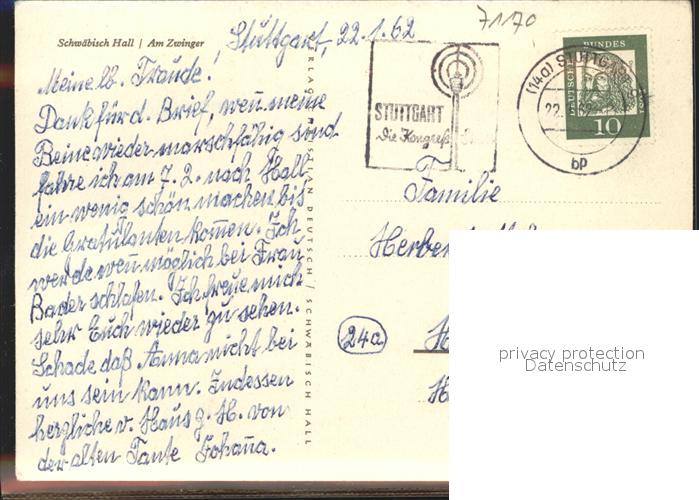 7170
Schwäbisch Hall | Am Zwinger
Stuttgart, 22.1.62
Meine lb. Traude!
Dank für d. Brief, weñ meine
Beine wieder marschfähig sind
fahre ich am 7.2. nach Hall
ein wenig schön machen bis
die Gratulanten kom̃en. Ich
werde weñ möglich bei Frau
Bader schlafen. Ich freue mich
sehr Euch wieder zu sehen.
Schade daß Anna nicht bei
uns sein kann. Indessen
herzliche v. Haus z. H. von
der alten Tante Johaña.
DEUTSCH / SCHWÄBISCH HALL
STUTTGART
die Kongreß
(14a) STUTTGART
22.
62
bp
DEUTSCHE BUNDESPOST
10
Familie
(24a)
H
H
privacy protection
Datenschutz